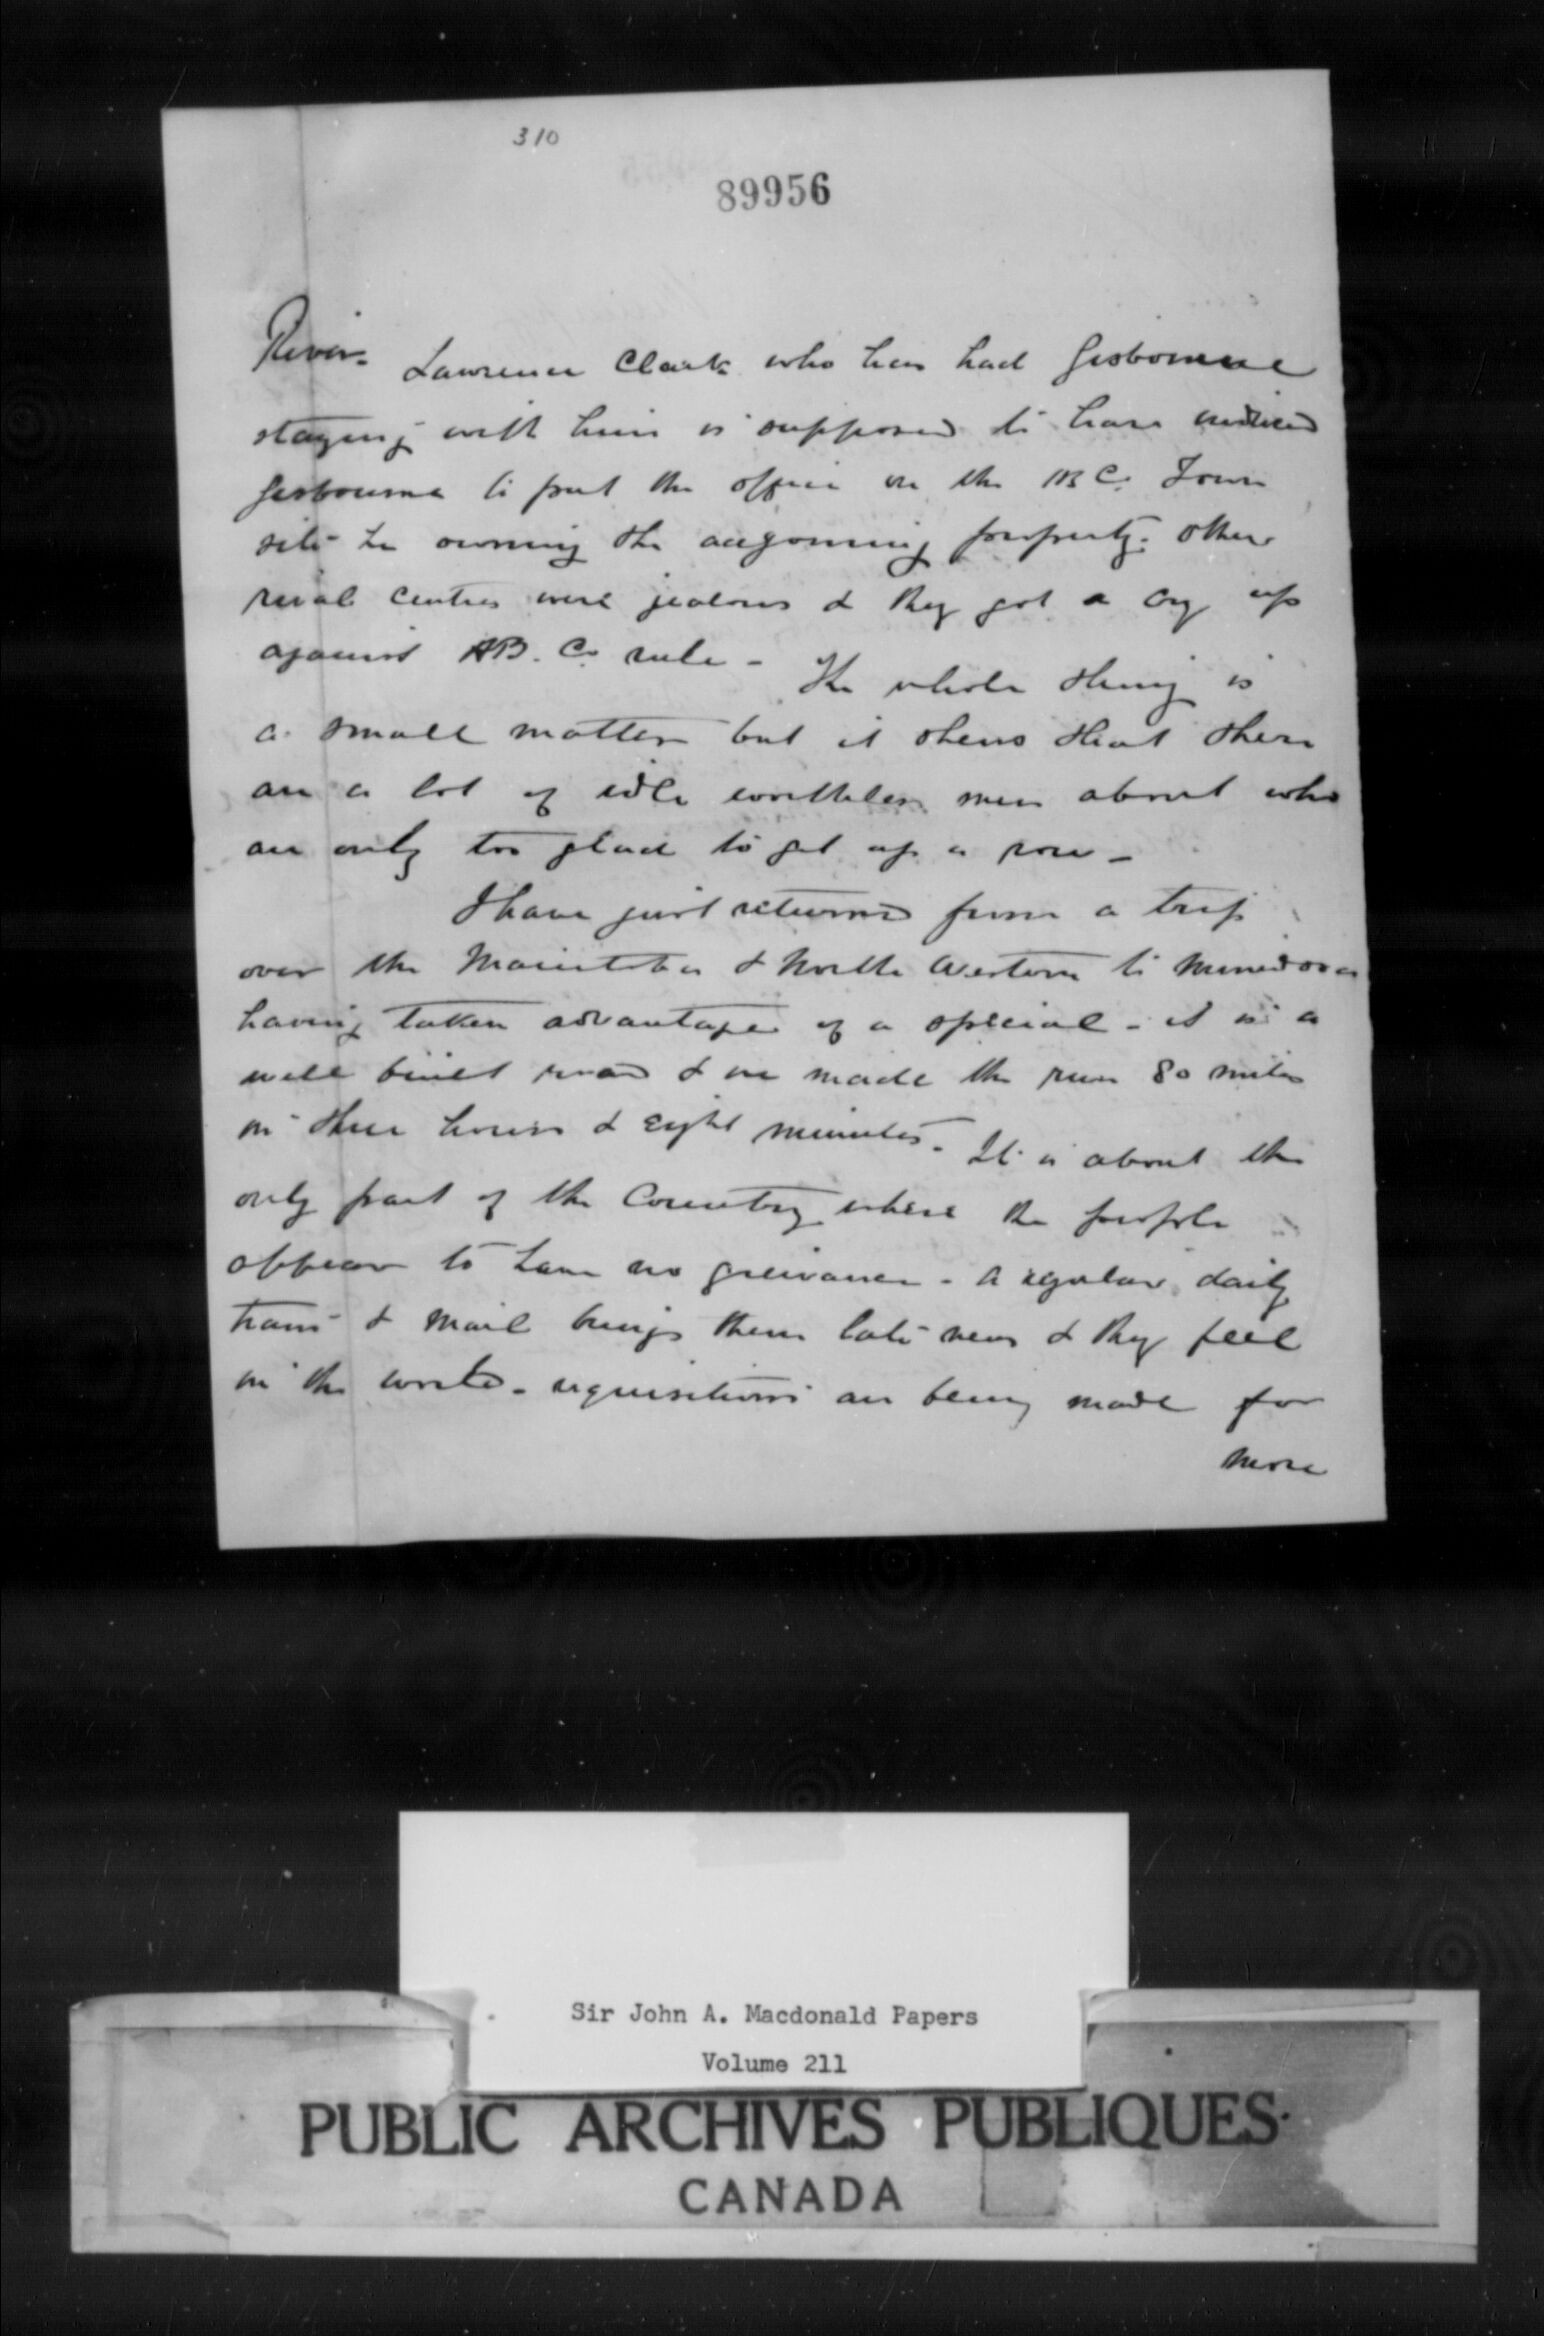 310
89956
River - Lawrence Clark who has had Gisborne
staying with him is supposed to have induced
Gisborne to put the office on the HB Co. Town
site he owning the adgoining property. Other
rival centres were jealous & they got a cry up
against HB. Co rule - The whole thing is
a small matter but it shews that there
are a lot of idle worthless men about who
are only too glad to get up a row -
I have just returned from a trip
over the Manitoba & North Western to Minnedosa
having taken advantage of a special - it is a
well built road & we made the run 80 miles
in three hours & eight minutes. It is about the
only part of the Country where the people
appear to have no greivance - A regular daily
train & mail brings them late news & they feel
in the world - requisitions are being made for
more
Sir John A. Macdonald Papers
Volume 211
PUBLIC ARCHIVES PUBLIQUES
CANADA